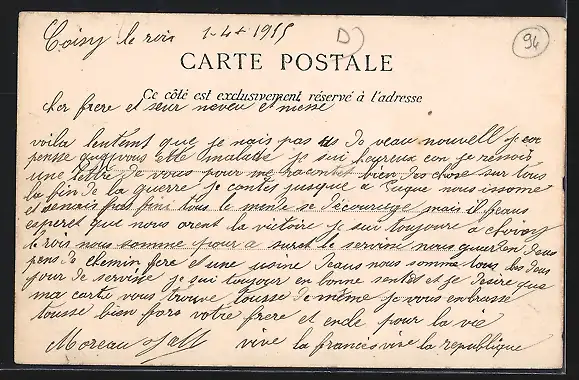 Coisy le rois 1-4+1915 D) 94
CARTE POSTALE
Ce côté est exclusivement réservé à l'adresse
cher frere et seur neveu et niesse
voila lentemt que je nais pas us de veau nouvell je
pensse que vous ette malade je sui hoyreux con je
une lettre de vous pour me racontet bien des chose sur tous
la fin de la guerre je contes jusque a que nous
et senais pas fini tous le monde se décourege mais il feaus
esperet que nous oront la victoire je sui toujoure a choisy
le rois nous somme pour a suret le servise nous deus
pens de chemin fere et une usine deaus nous somme tous les deus
jour de servise je sui toujour en bonne sentet et je desire que
ma carte vous trouve tousse de meme je vous enbrasse
tousse bien fors votre frere et oncle pour la vie
Moreau vive la francis vive la république